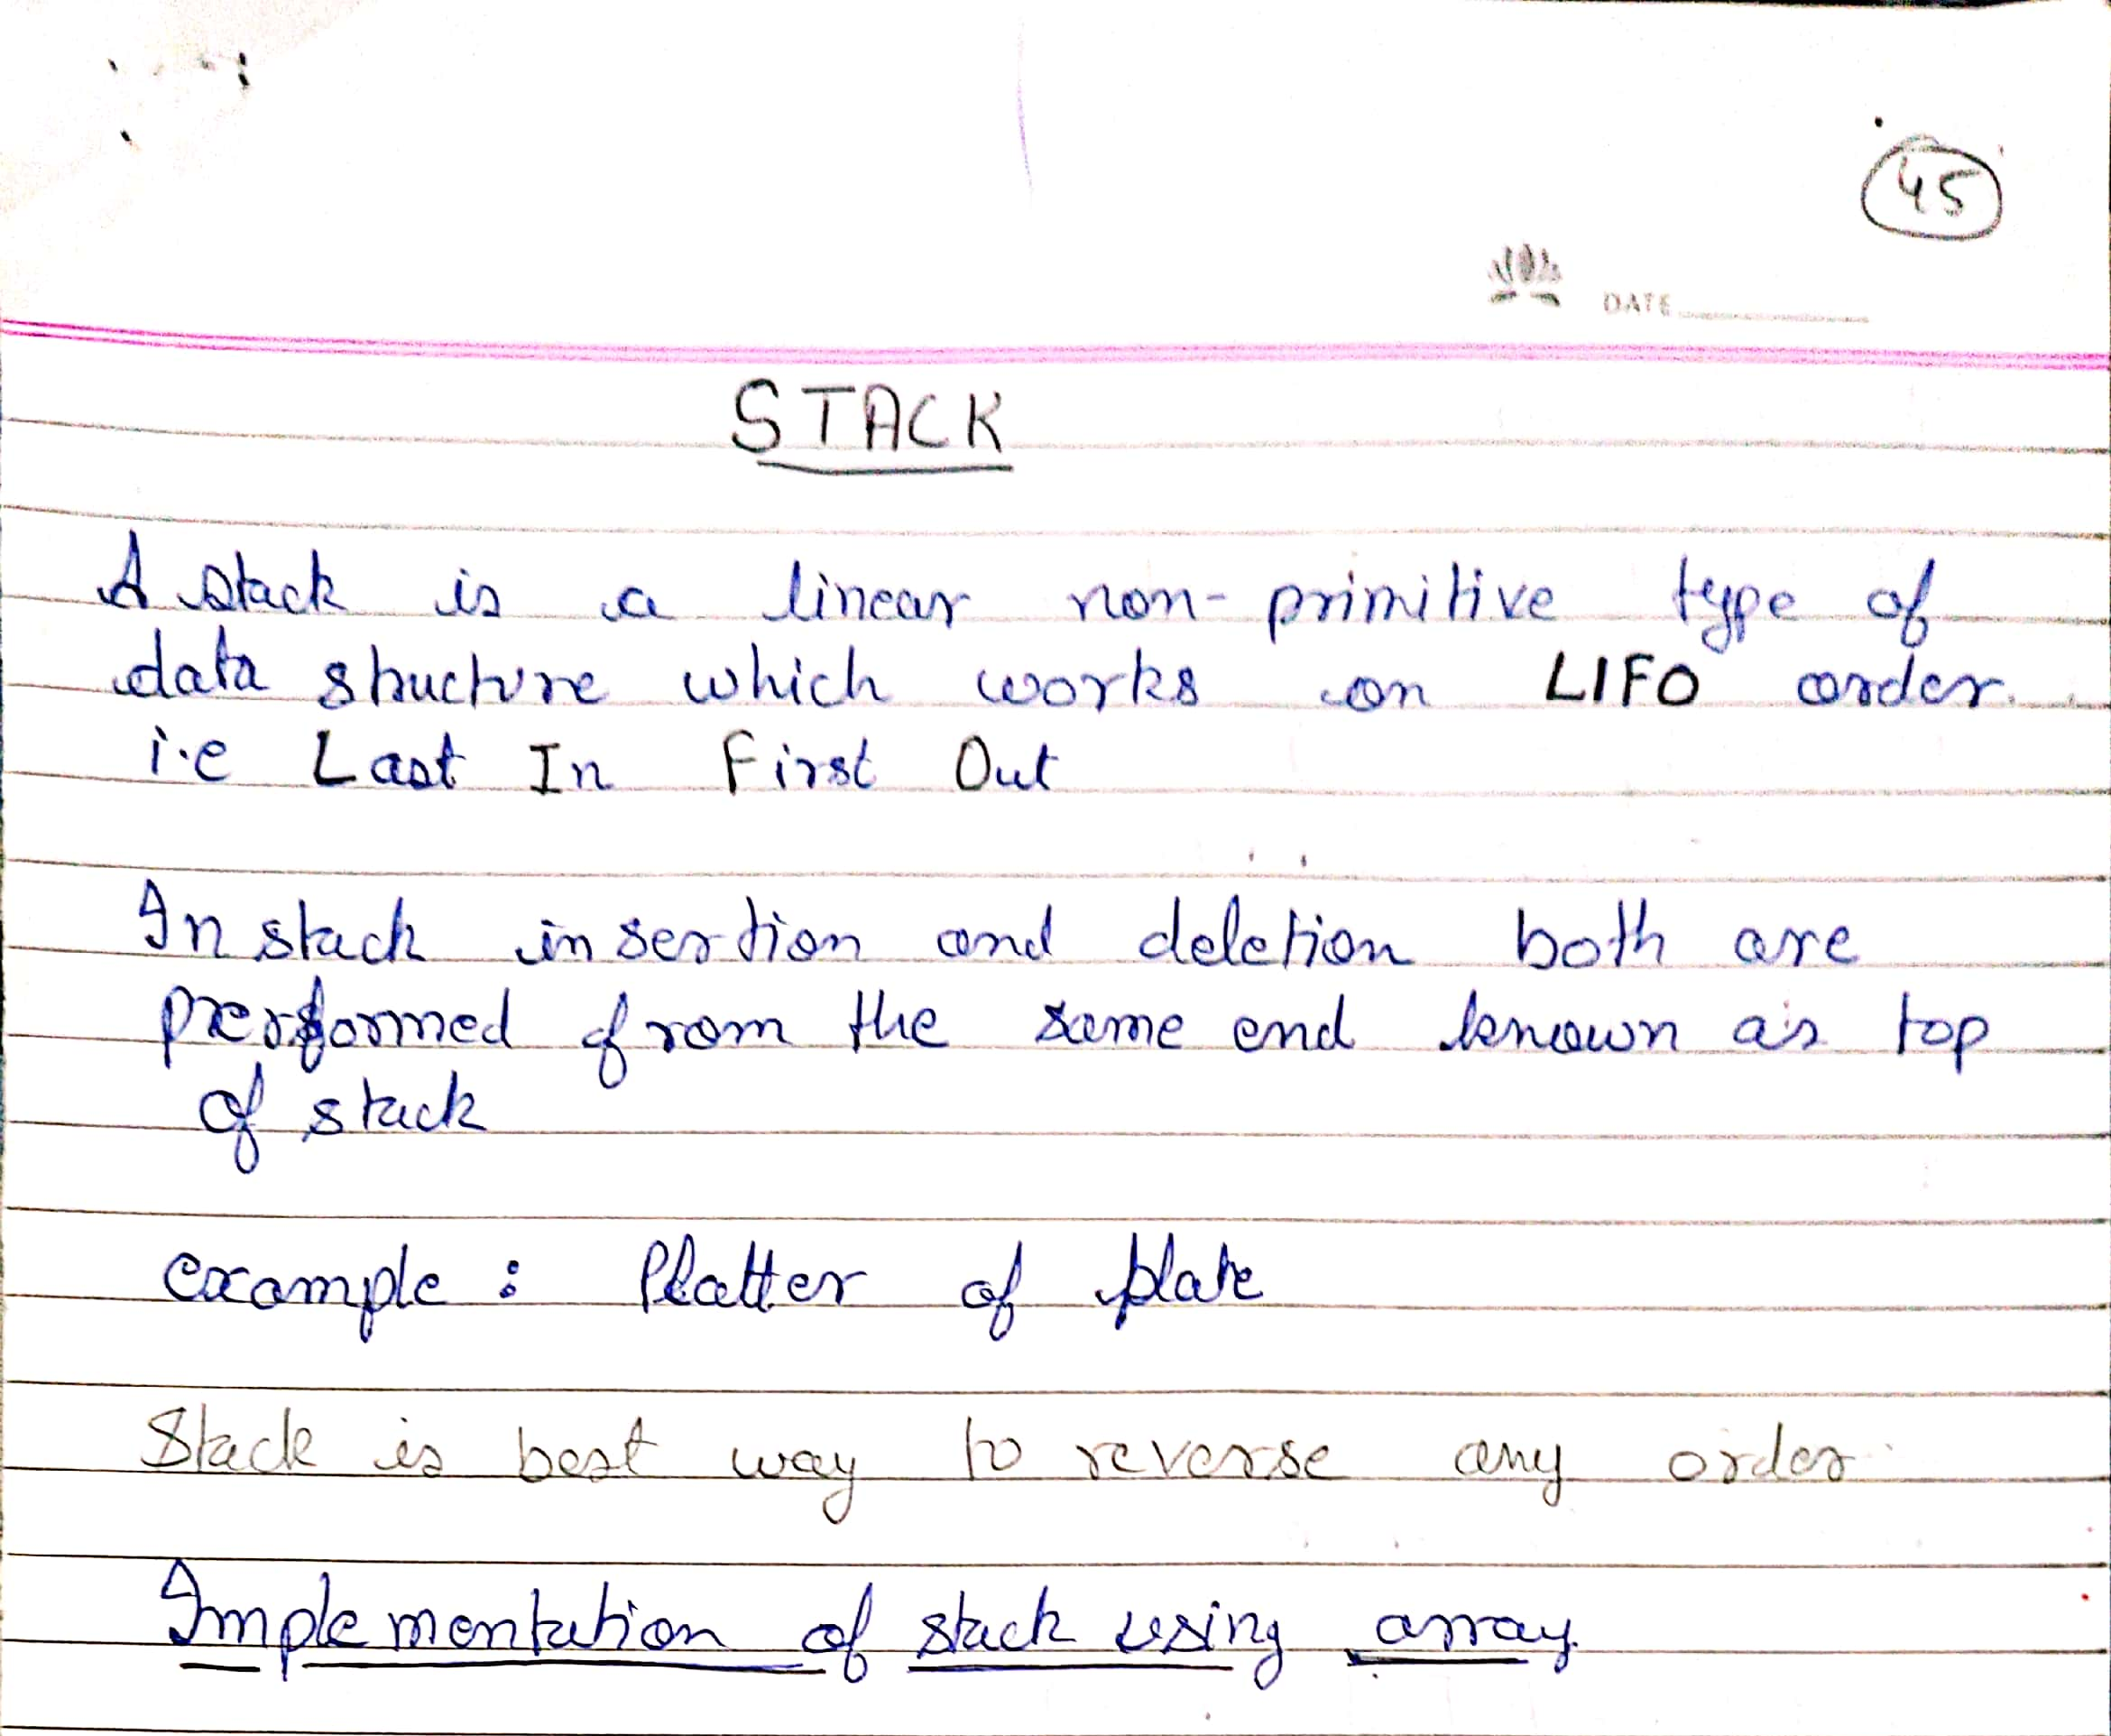 45
DATE
STACK
A stack is a linear non-primitive type of
data structure which works on LIFO order.
i.e Last In First Out
In stack insertion and deletion both are
performed from the same end known as top
of stack
example : Platter of plate
Stack is best way to reverse any order
Implementation of stack using array.